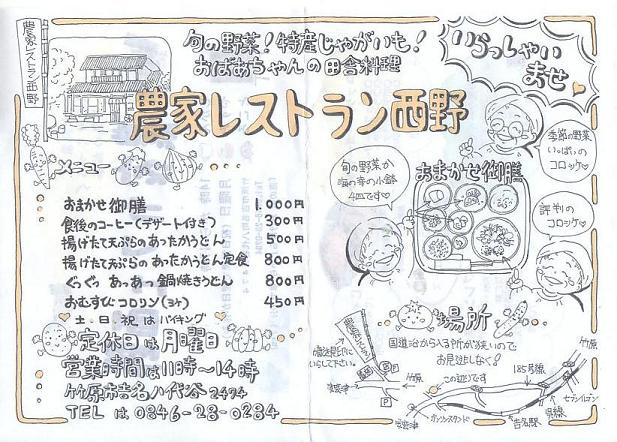 農家レストラン西野
旬の野菜!特産じゃがいも!
おばあちゃんの田舎料理
いらっしゃい
ませ
農家レストラン西野
メニュー
おまかせ御膳 1.000円
食後のコーヒー(デザート付き) 300円
揚げたて天ぷらのあったかうどん 500円
揚げたて天ぷらのあったかうどん定食 800円
ぐつぐつ あつあつ鍋焼きうどん 800円
おむすびコロリン(3ヶ) 450円
土、日、祝はバイキング
定休日は月曜日
営業時間は11時〜14時
竹原市吉名八代谷2494
TEL は 0846-28-0284
旬の野菜や
海の幸の小鉢
4皿です
おまかせ御膳
季節の野菜
いっぱいの
コロッケ
評判の
コロッケ
場所
国道沿から入る所が狭いので
お見逃しなく!
この辺りです
いらして下さい。
竹原
P
P
185号線
竹原
セブンイレブン
呉線
吉名駅
ガソリンスタンド
安芸津